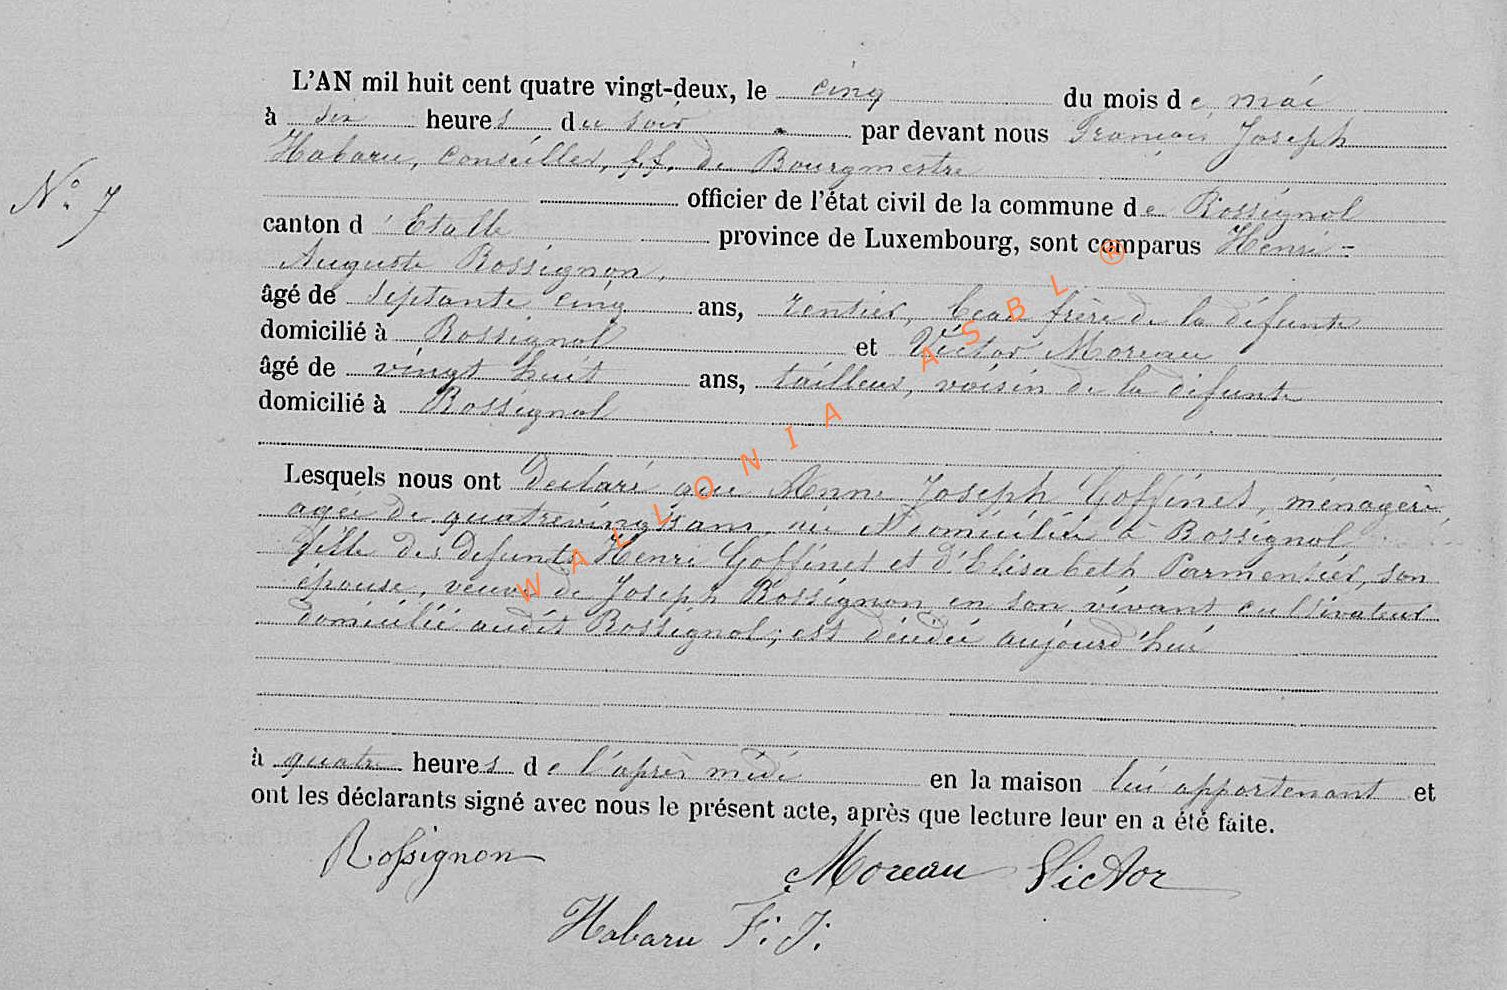 L'AN mil huit cent quatre vingt-deux, le cinq du mois de mai
à six heures du soir par devant nous François Joseph
Habaru, conseiller, f.f. de Bourgmestre
N° 7
officier de l'état civil de la commune de Rossignol
canton d'Etalle province de Luxembourg, sont comparus Henri-
Auguste Rossignon,
âgé de septante cinq ans, rentier, beau frère de la défunte
domicilié à Rossignol et Victor Moreau
âgé de vingt huit ans, tailleur, voisin de la défunte
domicilié à Rossignol
Lesquels nous ont déclaré que Anne Joseph Goffinet, ménagère
agée de quatrevingts ans, née et domiciliée à Rossignol
fille des défunts Henri Goffinet et d'Elisabeth Parmentier, son
épouse, veuve de Joseph Rossignon en son vivant cultivateur
domicilié audit Rossignol; est décédée aujourd'hui
à quatre heures de l'après midi en la maison lui appartenant et
ont les déclarants signé avec nous le présent acte, après que lecture leur en a été faite.
Rossignon Moreau Victor
Habaru F. J.
WALLONIA ASBL ®